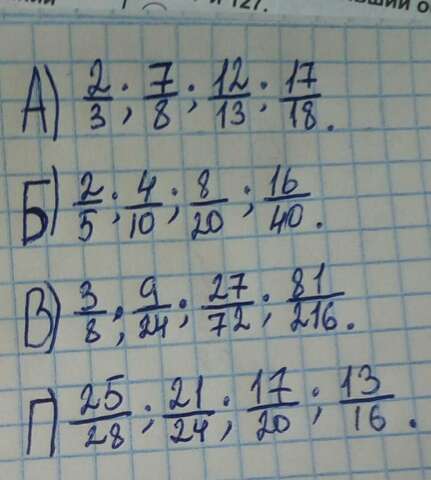 и 127.
А) 2/3; 7/8; 12/13; 17/18.
Б) 2/5; 4/10; 8/20; 16/40.
В) 3/8; 9/24; 27/72; 81/216.
П) 25/28; 21/24; 17/20; 13/16.